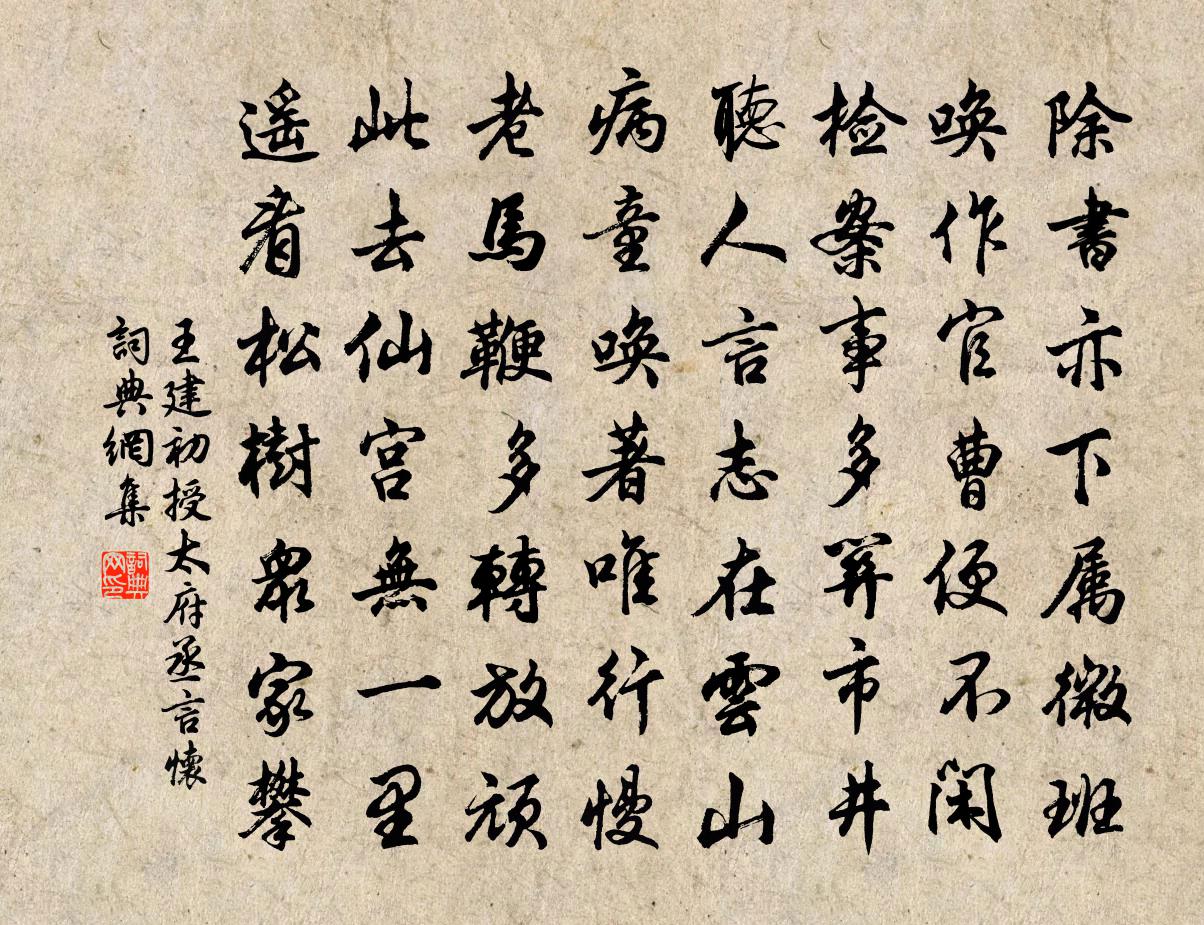 除書亦下属微班
喚作官曹便不閑
檢案事多關市井
聽人言志在雲山
病童喚著唯行慢
老馬鞭多轉放頑
此去仙宮無一里
遥看松樹衆家攀
王建初授太府丞言懷
詞典網集
詞典网印